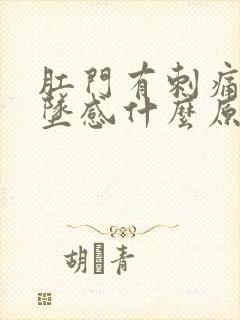 肛門有刺痛
墜感什麼原
胡青